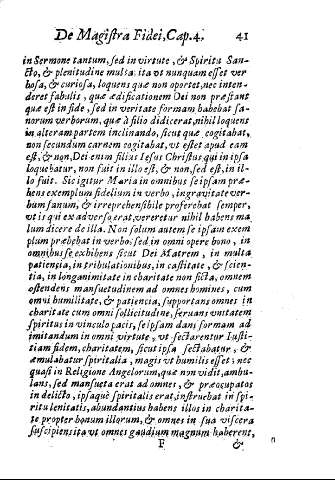 De Magistra Fidei, Cap. 4. 41
in Sermone tantum, sed in virtute, & Spiritu San-
cto, & plenitudine multa: ita vt nunquam esset ver
bosa, & curiosa, loquens quæ non oportet, nec inten-
deret fabulis, quæ ædificationem Dei non præstant
quæ est in fide, sed in veritate formam habebat sa-
norum verborum, quæ à filio didicerat, nihil loquens
in alteram partem inclinando, sicut quæ cogitabat,
non secundum carnem cogitabat, vt esset apud eam
est, & non, Dei enim filius Iesus Christus qui in ipsa
loquebatur, non fuit in illo est, & non, sed est, in il-
lo fuit. Sic igitur Maria in omnibus seipsam præ-
bens exemplum fidelium in verbo, in grauitate ver-
bum sanum, & irreprehensibile proferebat semper,
vt is qui ex aduerso erat, vereretur nihil habens ma
lum dicere de illa. Non solum autem se ipsam exem
plum præbebat in verbo, sed in omni opere bono, in
omnibus se exhibens sicut Dei Matrem, in multa
patientia, in tribulationibus, in castitate, & scien-
tia, in longanimitate in charitate non ficta, omnem
ostendens mansuetudinem ad omnes homines, cum
omni humilitate, & patiencia, supportans omnes in
charitate cum omni sollicitudine, seruans vnitatem
spiritus in vinculo pacis, seipsam dans formam ad
imitandum in omni virtute, vt sectarentur Iusti-
tiam fidem, charitatem, sicut ipsa sectabatur, &
æmulabatur spiritalia, magis vt humilis esset; nec
quasi in Religione Angelorum, quæ non vidit, ambu-
lans, sed mansueta erat ad omnes, & præocupatos
in delicto, ipsaquè spiritalis erat, instruebat in spi-
ritu lenitatis, abundantius habens illos in charita-
te propter bonum illorum, & omnes in sua viscera
suscipiens ita vt omnes gaudium magnum haberent,
F &